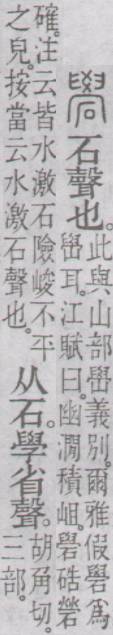 礐
石聲也。
此與山部嶨義別。爾雅假礐爲
嶨耳。江賦曰。幽澗積岨。礐硞䂫
確。注云皆水激石險峻不平
之皃。按當云水激石聲也。
从石。學省聲。
胡角切。
三部。